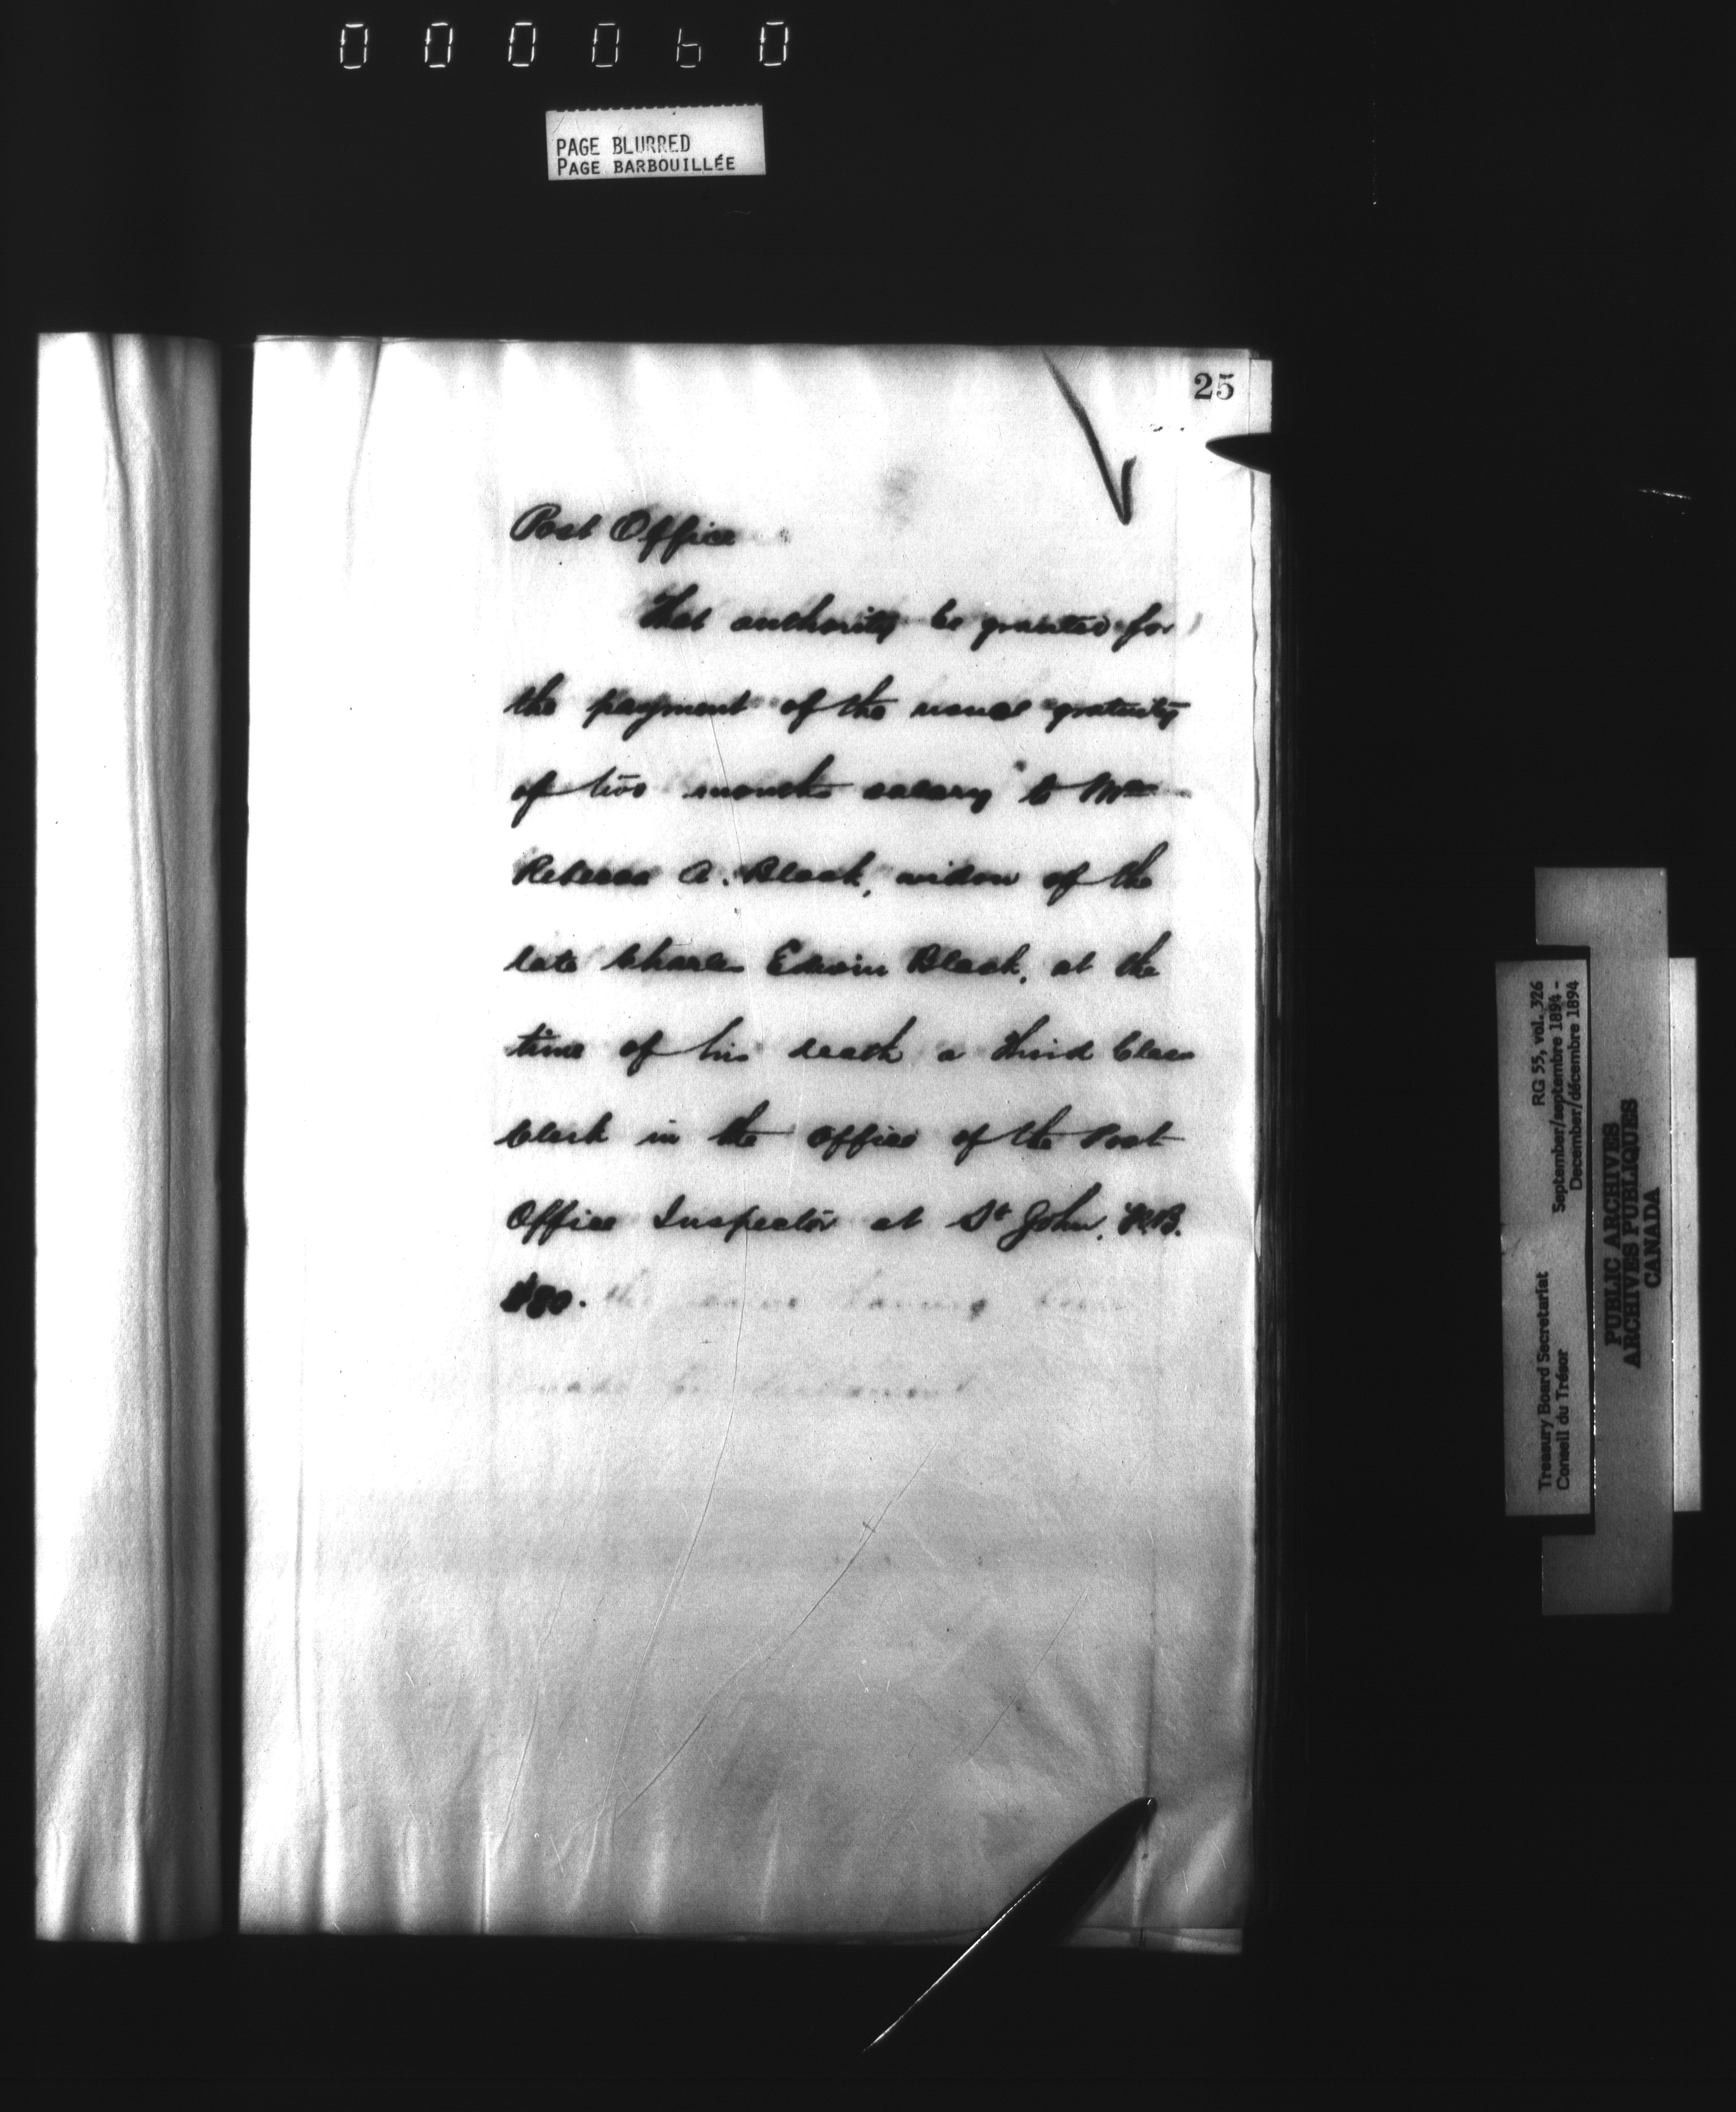 000060
PAGE BLURRED
PAGE BARBOUILLÉE
25
Post Office
That authority be granted for
the payment of the usual gratuity
of two months salary to Mrs
Rebecca A. Black, widow of the
late Charles Edwin Black, at the
time of his death a Third Class
Clerk in the Office of the Post
Office Inspector at St John, N.B.
$80. the same having been
made by
RG 55, vol. 326
September/septembre 1894 -
December/décembre 1894
Treasury Board Secretariat
Conseil du Trésor
PUBLIC ARCHIVES
ARCHIVES PUBLIQUES
CANADA